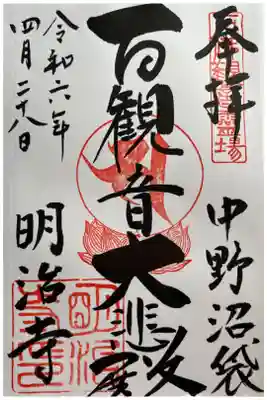 奉拝
中野沼袋
百観音大悲殿
明治寺
令和六年
四月二十八日